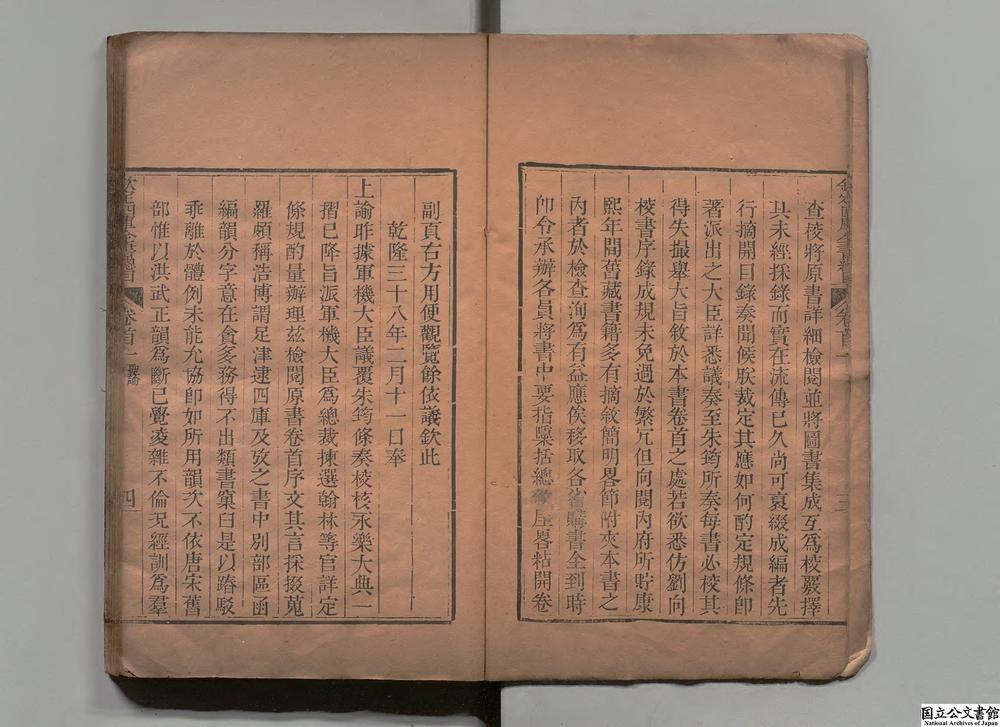 查校將原書詳細檢閱並將圖書集成互爲校覈擇
其未經採錄而實在流傳已久尚可裒綴成編者先
行摘開目錄奏聞候朕裁定其應如何酌定規條即
著派出之大臣詳悉議奏至朱筠所奏每書必校其
得失撮舉大旨敘於本書卷首之處若欲悉仿劉向
校書序錄成規未免過於繁冗但向閱內府所貯康
熙年間舊藏書籍多有摘敘簡明畧節附夾本書之
內者於檢查洵爲有益應俟移取各省購書全到時
即令承辦各員將書中要指檃括總敘厓畧粘開卷
副頁右方用便觀覽餘依議欽此
乾隆三十八年二月十一日奉
上諭昨據軍機大臣議覆朱筠條奏校核永樂大典一
摺已降旨派軍機大臣爲總裁揀選翰林等官詳定
條規酌量辦理茲檢閱原書卷首序文其言採掇蒐
羅頗稱浩博謂足津逮四庫及攷之書中別部區函
編韻分字意在貪多務得不出類書窠臼是以踳駁
乖離於體例未能允協即如所用韻次不依唐宋舊
部惟以洪武正韻爲斷已覺凌雜不倫況經訓爲羣
卷首一 聖諭
四
国立公文書館
National Archives of Japan